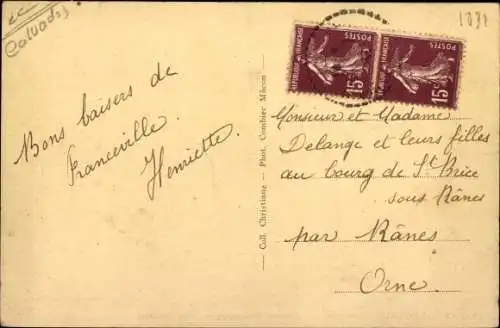 (Calvados)
Bons baisers de
Franceville.
Henriette.
Coll. Christiane - Phot. Combier Mâcon
REPUBLIQUE FRANÇAISE
POSTES
15c
REPUBLIQUE FRANÇAISE
POSTES
15c
Monsieur et Madame
Delange et leurs filles
au bourg de St Brice
sous Rânes
par Rânes
Orne.